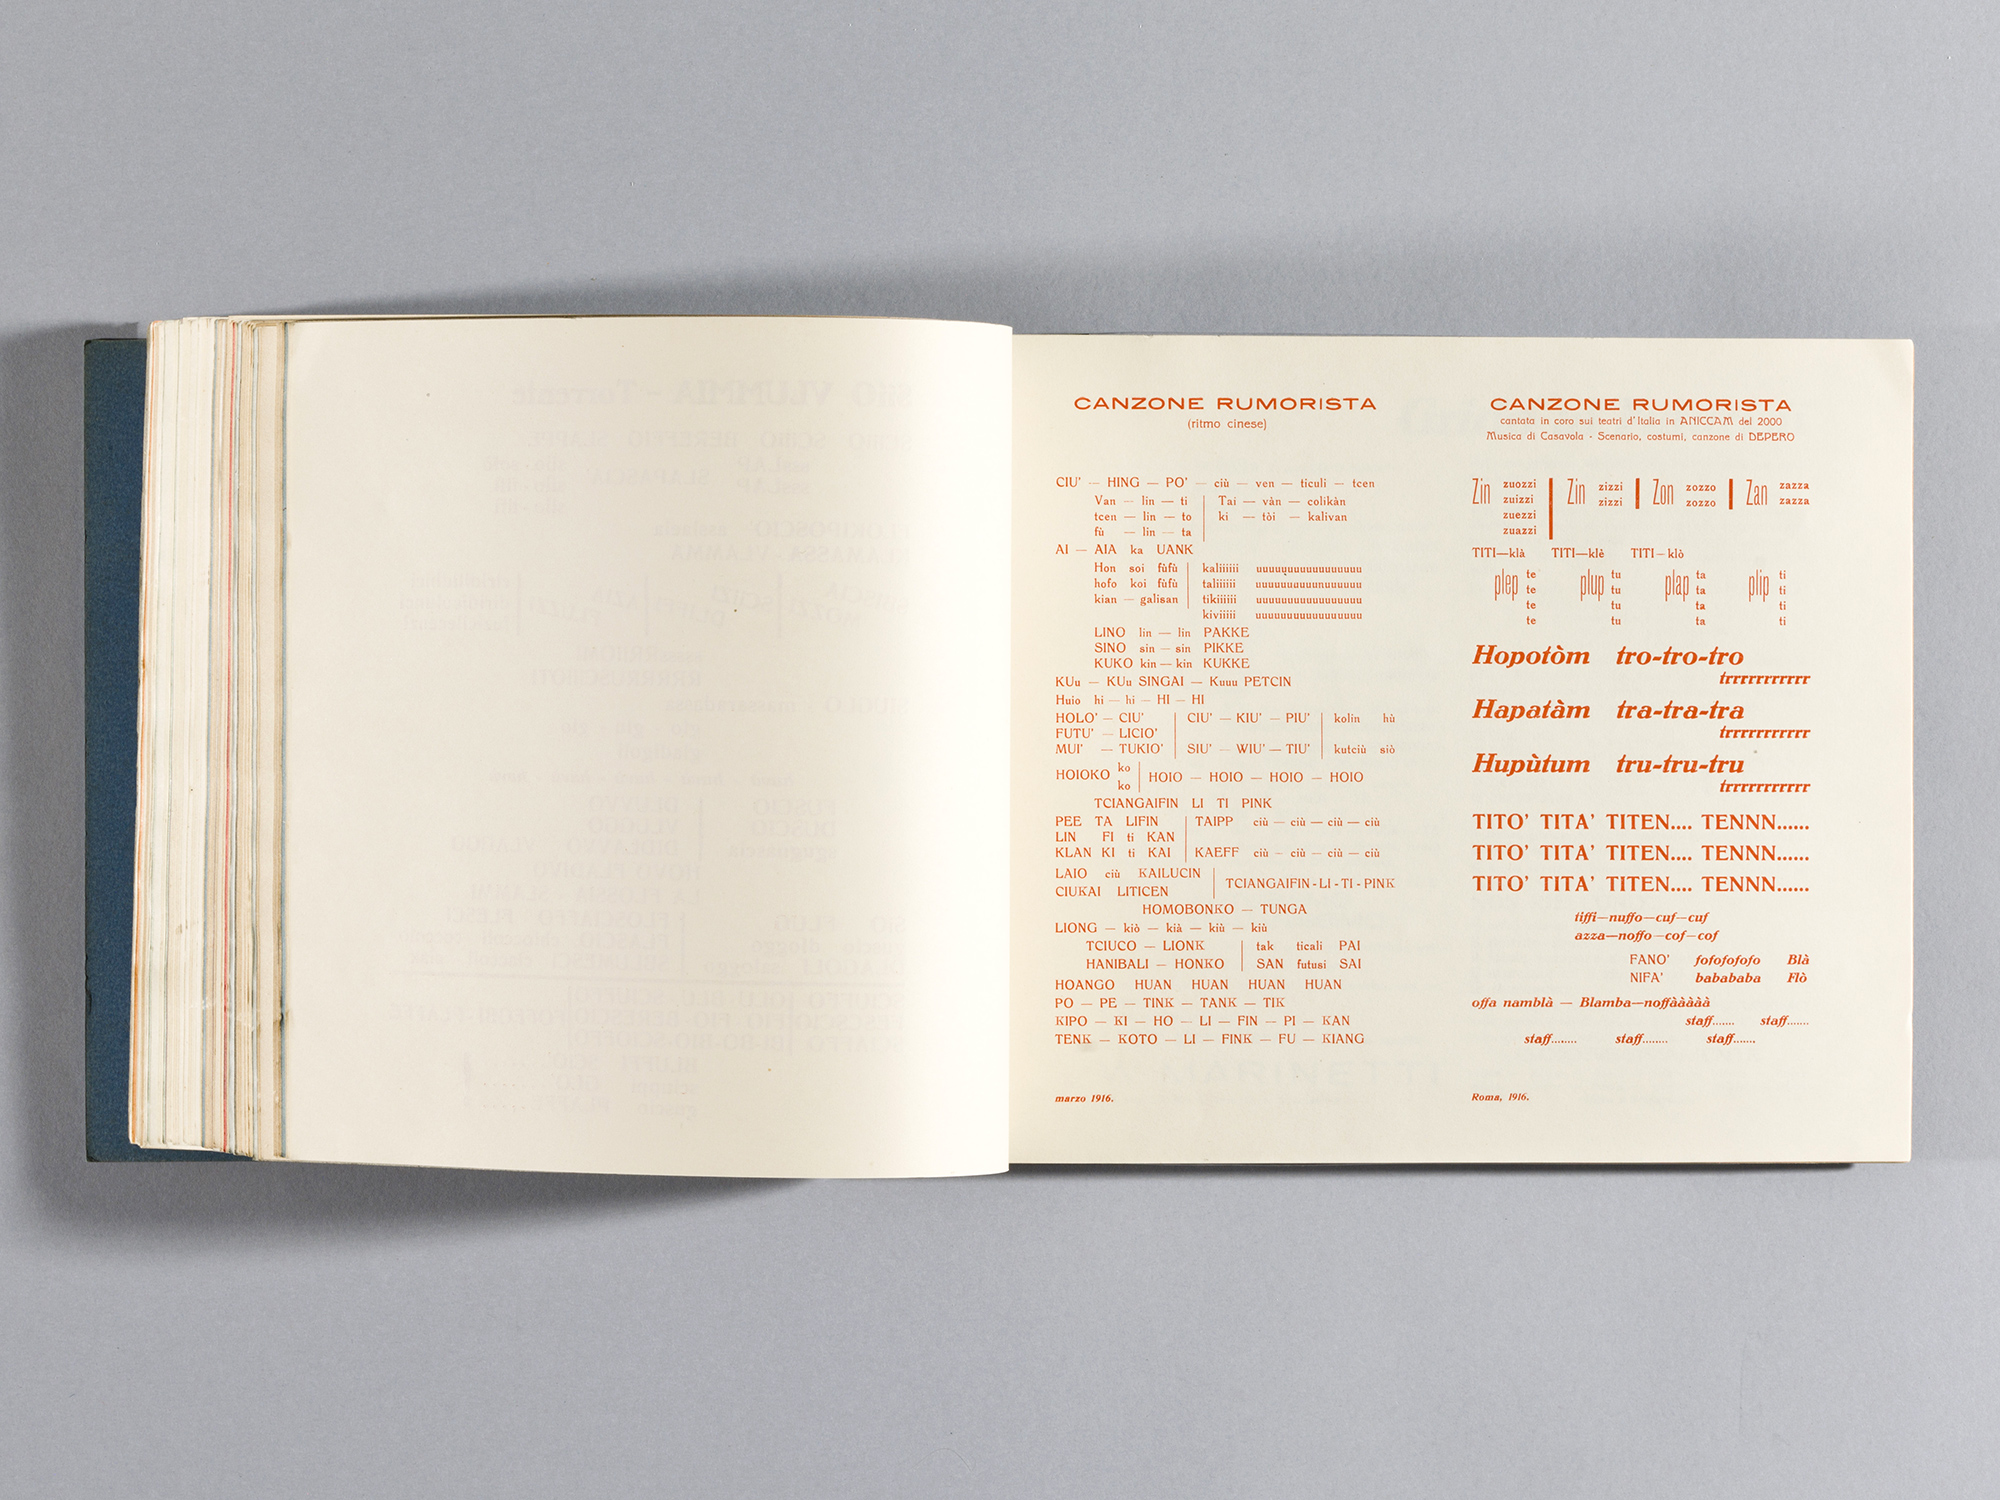 CANZONE RUMORISTA
(ritmo cinese)
CIU' — HING — PO' — ciù — ven — ticuli — tcen
Van — lin — ti | Tai — vàn — colikàn
tcen — lin — to | ki — tòi — kalivan
fù — lin — ta
AI — AIA ka UANK
Hon soi fùfù | kaliiiiii uuuuuuuuuuuuuuuuu
hofo koi fùfù | taliiiiii uuuuuuuuuuuuuuuuu
kian — galisan | tikiiiiii uuuuuuuuuuuuuuuuu
kiviiiii uuuuuuuuuuuuuuuuu
LINO lin — lin PAKKE
SINO sin — sin PIKKE
KUKO kin — kin KUKKE
KUu — KUu SINGAI — Kuuu PETCIN
Huio hi — hi — HI — HI
HOLO' — CIU' | CIU' — KIU' — PIU' | kolin hù
FUTU' — LICIO'
MUI' — TUKIO' | SIU' — WIU' — TIU' | kutciù siò
HOIOKO ko ko | HOIO — HOIO — HOIO — HOIO
TCIANGAIFIN LI TI PINK
PEE TA LIFIN | TAIPP ciù — ciù — ciù — ciù
LIN FI ti KAN
KLAN KI ti KAI | KAEFF ciù — ciù — ciù — ciù
LAIO ciù KAILUCIN | TCIANGAIFIN - LI - TI - PINK
CIUKAI LITICEN
HOMOBONKO — TUNGA
LIONG — kiò — kià — kiù — kiù
TCIUCO — LIONK | tak ticali PAI
HANIBALI — HONKO | SAN futusi SAI
HOANGO HUAN HUAN HUAN HUAN
PO — PE — TINK — TANK — TIK
KIPO — KI — HO — LI — FIN — PI — KAN
TENK — KOTO — LI — FINK — FU — KIANG
marzo 1916.
CANZONE RUMORISTA
cantata in coro sui teatri d'Italia in ANICCAM del 2000
Musica di Casavola - Scenario, costumi, canzone di DEPERO
Zin zuozzi | Zin zizzi | Zon zozzo | Zan zazza
zuizzi zizzi zozzo zazza
zuezzi
zuazzi
TITI—klà TITI—klè TITI—klò
plep te plup tu plap ta plip ti
te tu ta ti
te tu ta ti
te tu ta ti
Hopotòm tro-tro-tro
trrrrrrrrrrr
Hapatàm tra-tra-tra
trrrrrrrrrrr
Hupùtum tru-tru-tru
trrrrrrrrrrr
TITO' TITA' TITEN.... TENNN......
TITO' TITA' TITEN.... TENNN......
TITO' TITA' TITEN.... TENNN......
tiffi—nuffo—cuf—cuf
azza—noffo—cof—cof
FANO' fofofofofo Blà
NIFA' babababa Flò
offa namblà — Blamba—noffààààà
staff....... staff.......
staff........ staff........ staff.......
Roma, 1916.